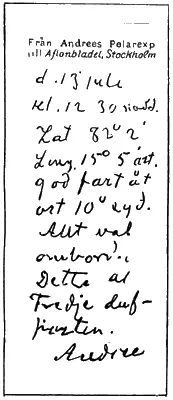 Från Andrees Polarexp
till Aftonbladet, Stockholm
d. 13 juli
kl. 12 30 midd.
Lat 82° 2'
Long. 15° 5' öst.
god fart åt
ost 10° syd.
Allt väl
ombord.
Detta är
Tredje duf-
posten.
Andrée